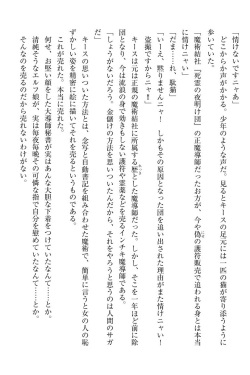 「情けないですニャあ」
　どこからか声がかかる。少年のような声だ。見るとキースの足元には一匹の猫が寄り添うように
歩いていた。
「魔術結社『死霊の夜明け団』の正魔導師だったお方が、今や偽の護符販売で追われる身とは本当
に情けニャい」
「だま……れ、駄猫」
「いーえ、黙りませんニャー！　しかもその原因となった団を追い出された理由がまた情けニャい！
盗撮ですからニャー！」
　キースは元は正規の魔術結社に所属する歴とした魔導師だった。しかし、そこを一年ほど前に除
団となり、今は流浪の身で効きもしない護符や霊薬などを売るインチキ魔導師である。
「しょうがないだろう。金儲けの方法を思いついたんだから。それをやろうと思うのは人間のサガ
だ」
　キースの思いついた方法とは、念写と自動書記を組み合わせた魔術で、簡単に言うと女の人の恥
ずかしい姿を精密に絵に描いてそれを売るというものである。
　これが売れた。本当に売れた。
　何せ、お堅い顔をした大導師秘書が実はあんな大胆な下着をつけていたなんて……とか。
　清純そうなエルフ娘が、実は毎夜毎晩その可憐な指で自分を慰めていたなんて……とか。
　そんなのを売るのだから売れないわけがない。